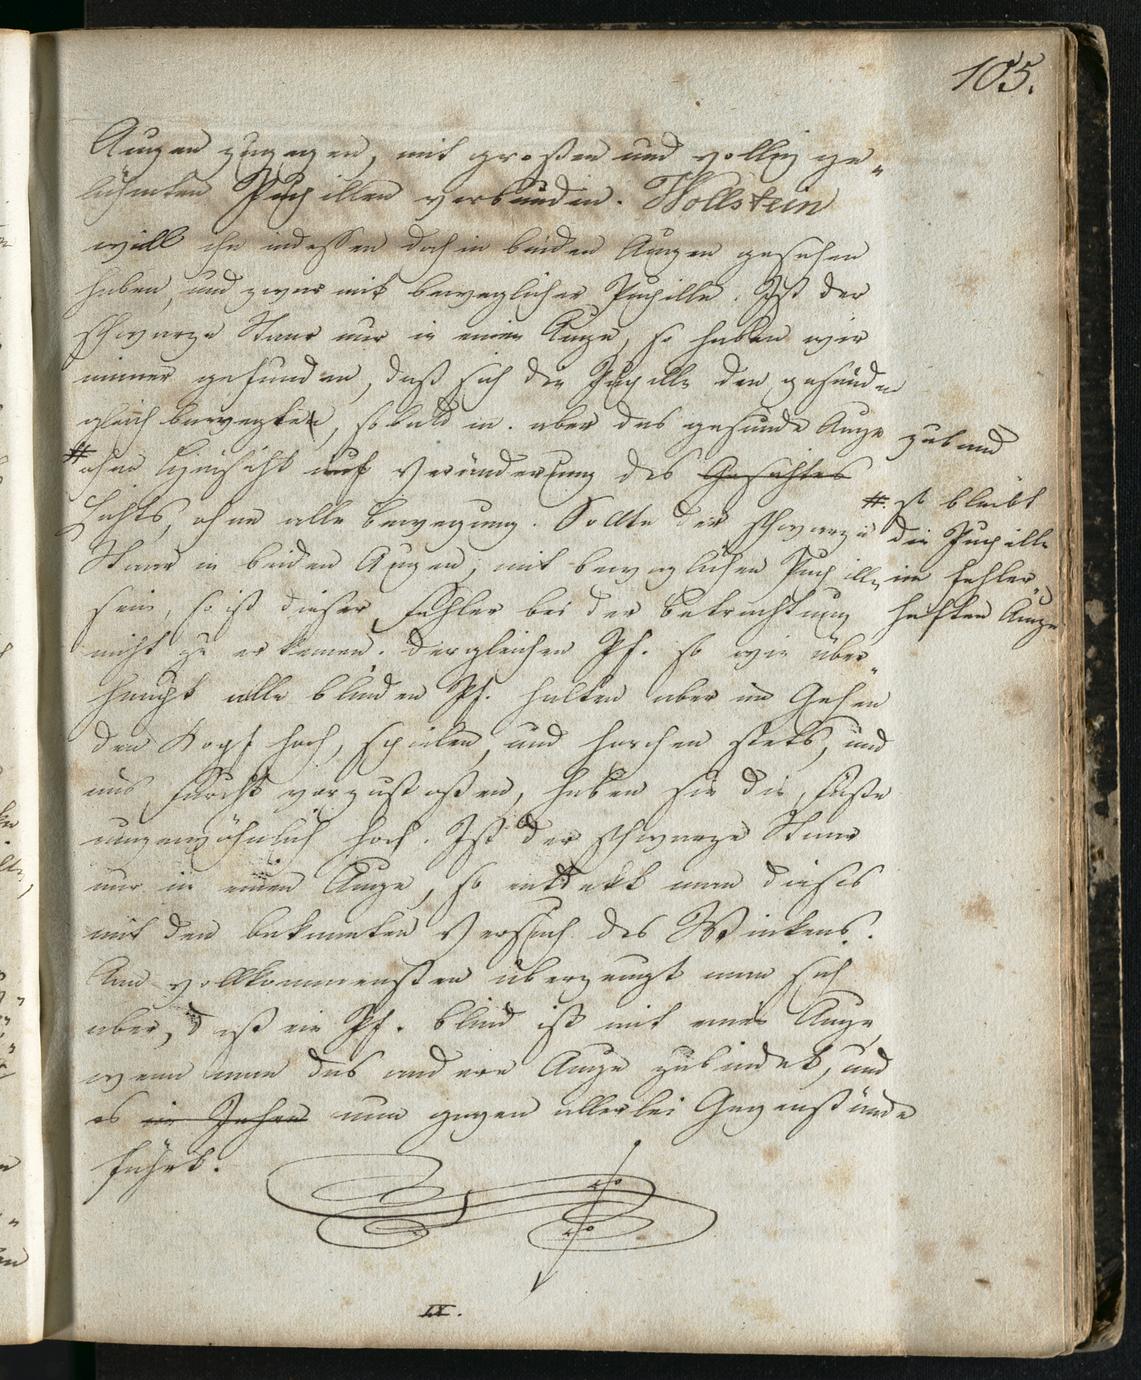 105.
Augen zugegen, mit großen und völlig ge„
lähmten Pupillen verbunden. Wollstein
will ihn indessen doch in beiden Augen gesehen
haben, und zwar mit beweglicher Pupille. Ist der
schwarze Staar nur in einem Auge, so haben wir
immer gefunden, daß sich die Pupille den gesunden
gleich bewegte, sobald m. aber das gesunde Auge zuband
# ohne Hinsicht auf Veränderung des Gesichtes
Lichts, ohne alle bewegung. Sollte der schwarze
Staar in beiden Augen, mit beweglichen Pupille
sein, so ist dieser Fehler bei der betrachtung
nicht zu erkennen. dergleichen Pf. so wie über„
haupt alle blinden Pf. halten aber im Gehen
den Kopf hoch, spielen, und horchen stets, und
aus Furcht vorzustoßen, heben sie die Füße
ungewöhnlich hoch. Ist der schwarze Staar
nur in einem Auge, so entdekt man dieses
mit den bekannten Versuch des Winkens.
Am vollkommensten überzeugt man sich
aber, daß ein Pf. blind ist mit einem Auge,
wenn man das andere Auge zubindet, und
es im Gehen nun gegen allerlei Gegenstände
führt.
# so bleibt
die Pupille
im fehler„
haften Auge
IX.